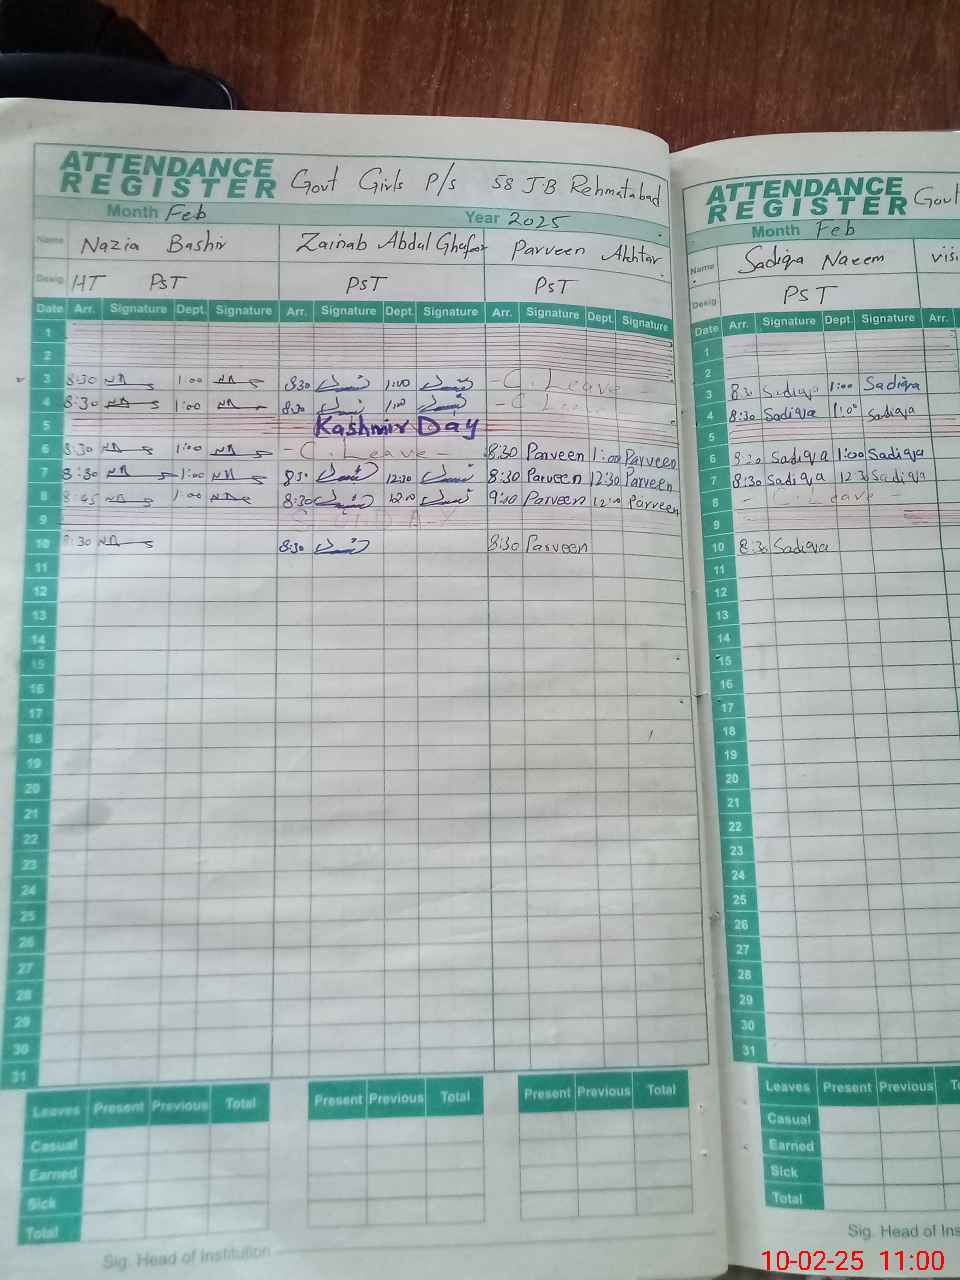 ATTENDANCE REGISTER Govt Girls P/s 58 J.B Rehmatabad
Month Feb Year 2025
Name Nazia Bashir Zainab Abdul Ghafoor Parveen Akhtar
Desig HT PST PST PST
Date Arr. Signature Dept. Signature Arr. Signature Dept. Signature Arr. Signature Dept. Signature
1
2
3 8:30 1:00 8:30 1:00 - C. Leave -
4 8:30 1:00 8:30 1:00 - C. Leave
5 Kashmir Day
6 8:30 1:00 - C. Leave - 8:30 Parveen 1:00 Parveen
7 8:30 1:00 8:30 12:30 8:30 Parveen 12:30 Parveen
8 8:45 1:00 8:30 12:00 9:10 Parveen 12:00 Parveen
9 SUNDAY
10 8:30 8:30 8:30 Parveen
11
12
13
14
15
16
17
18
19
20
21
22
23
24
25
26
27
28
29
30
31
Leaves Present Previous Total Present Previous Total Present Previous Total
Casual
Earned
Sick
Total
Sig. Head of Institution
ATTENDANCE REGISTER Govt
Month Feb
Name Sadiqa Naeem
Desig PST
Date Arr. Signature Dept. Signature Arr.
1
2
3 8:30 Sadiqa 1:00 Sadiqa
4 8:30 Sadiqa 1:00 Sadiqa
5
6 8:20 Sadiqa 1:00 Sadiqa
7 8:30 Sadiqa 12:30 Sadiqa
8 - C. Leave -
9
10 8:30 Sadiqa
11
12
13
14
15
16
17
18
19
20
21
22
23
24
25
26
27
28
29
30
31
Leaves Present Previous
Casual
Earned
Sick
Total
Sig. Head of Ins
10-02-25 11:00